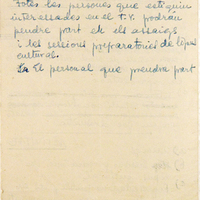 Totes les persones que estiguin
interessades en el T.V. podran
pendre part en els assaigs
i les sessions preparatories de
cultural.
El personal que prendra part